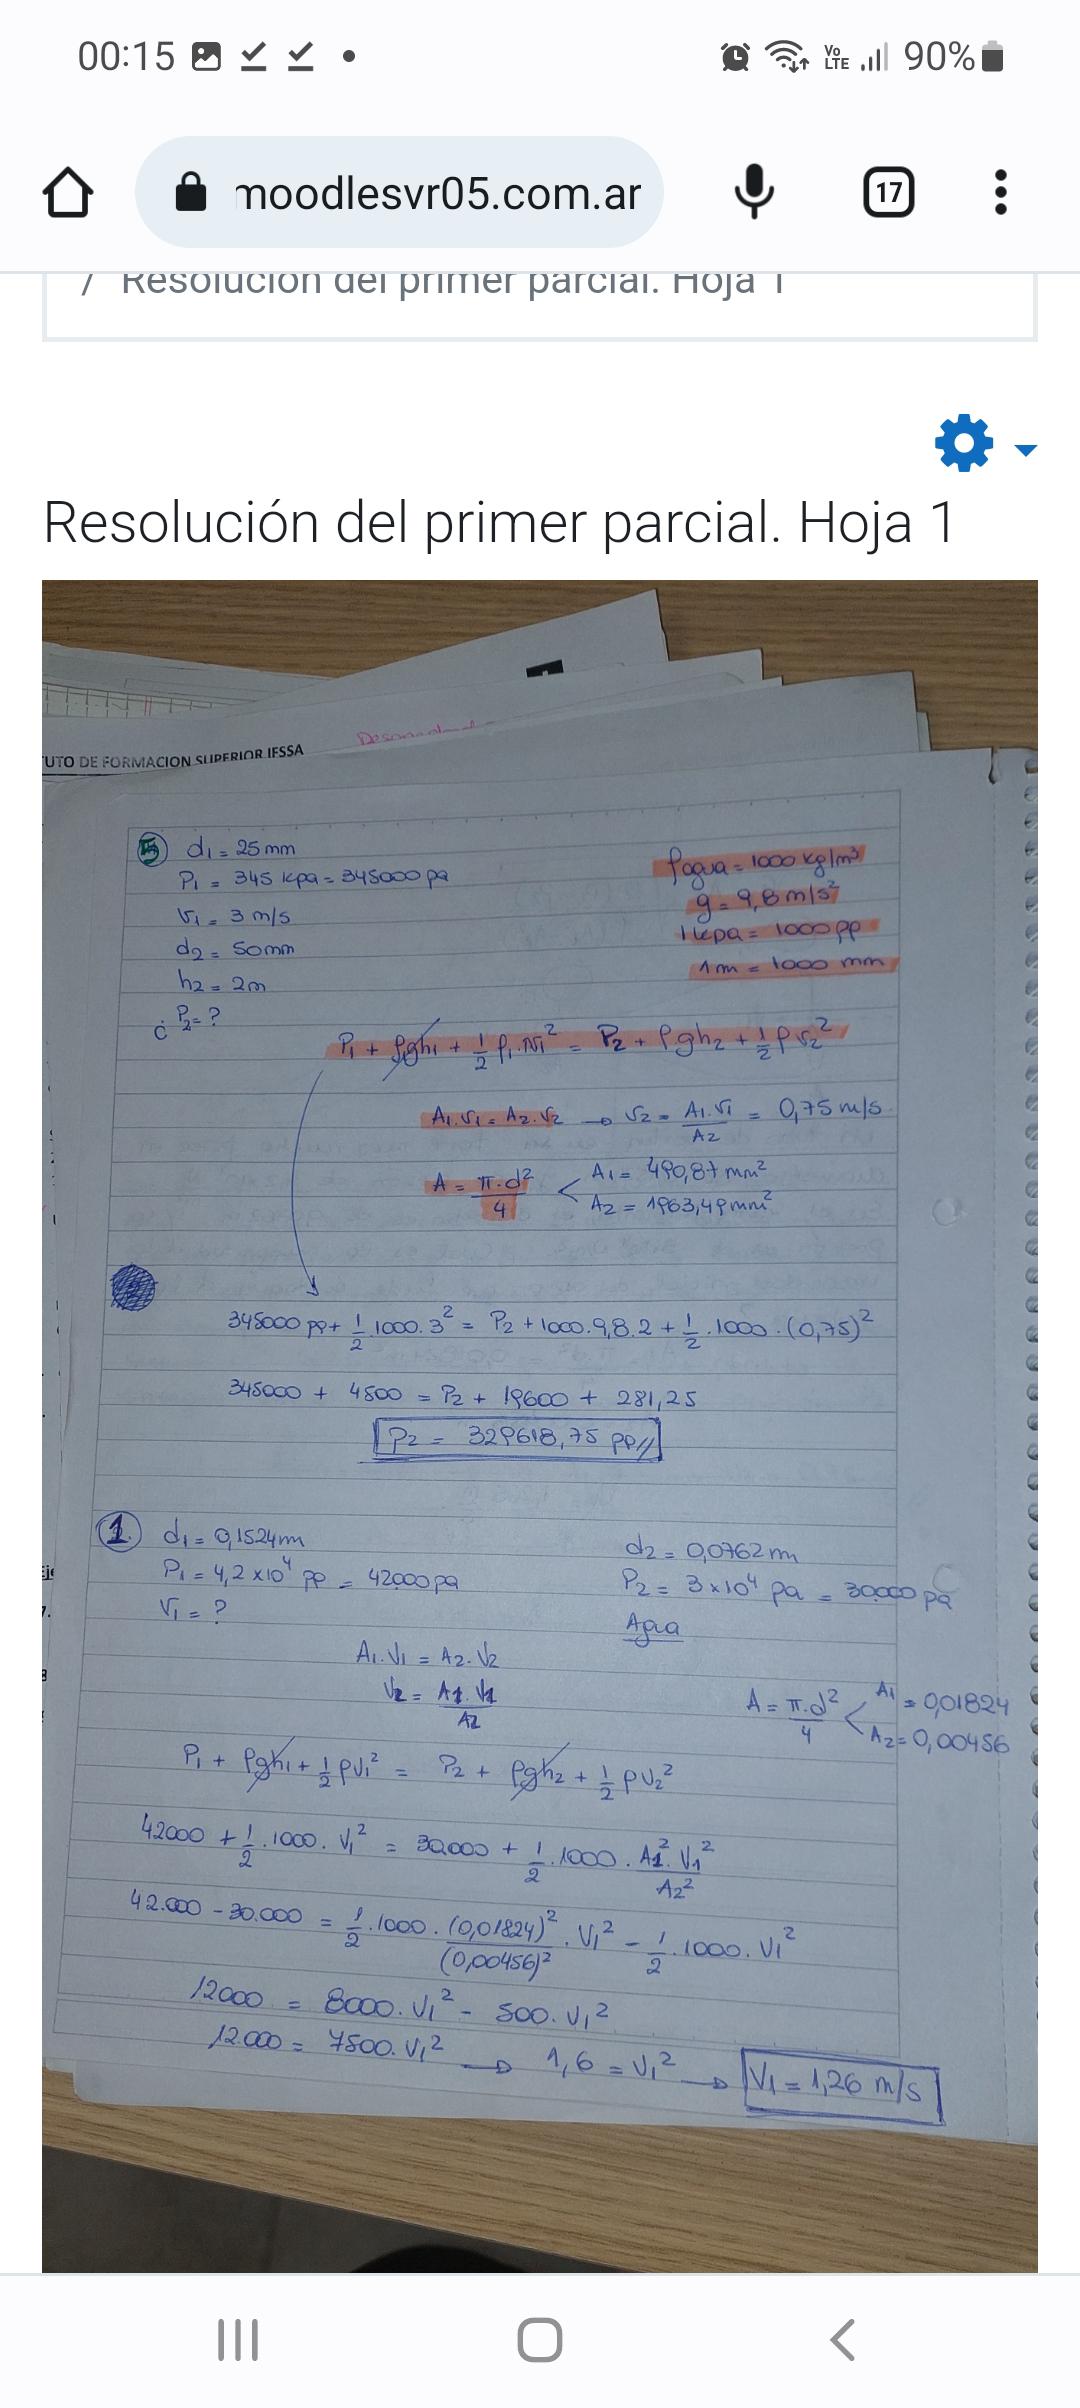 00:15 Vo LTE 90%
moodlesvr05.com.ar 17
/ Resolución del primer parcial. Hoja 1
Resolución del primer parcial. Hoja 1
UTO DE FORMACION SUPERIOR IFSSA
5 d₁ = 25 mm
P₁ = 345 kpa = 345000 pa
V₁ = 3 m/s
d₂ = 50mm
h₂ = 2m
¿ P₂ = ?
ρagua = 1000 kg/m³
g = 9,8 m/s²
1 kpa = 1000 pp
1 m = 1000 mm
P₁ + ρgh₁ + 1/2 ρ₁.V₁² = P₂ + ρgh₂ + 1/2 ρ v₂²
A₁.V₁ = A₂.V₂ → V₂ = A₁.V₁/A₂ = 0,75 m/s
A = π.d²/4 < A₁ = 490,87 mm²
A₂ = 1963,49 mm²
345000 pp + 1/2 .1000.3² = P₂ + 1000.9,8.2 + 1/2 .1000.(0,75)²
345000 + 4500 = P₂ + 19600 + 281,25
P₂ = 329618,75 pp//
1. d₁ = 0,1524m
P₁ = 4,2 x10⁴ pp = 42000 pa
V₁ = ?
d₂ = 0,0762 m
P₂ = 3 x10⁴ pa = 30.000 pa
Agua
A₁.V₁ = A₂.V₂
V₂ = A₁.V₁/A₂
A = π.d²/4 < A₁ = 0,01824
A₂ = 0,00456
P₁ + ρgh₁ + 1/2 ρV₁² = P₂ + ρgh₂ + 1/2 ρV₂²
42000 + 1/2 .1000. V₁² = 30.000 + 1/2 .1000 . A₁².V₁²/A₂²
42.000 - 30.000 = 1/2 .1000. (0,01824)²/(0,00456)² . V₁² - 1/2 .1000. V₁²
12000 = 8000.V₁² - 500.V₁²
12.000 = 7500.V₁² → 1,6 = V₁² → V₁ = 1,26 m/s